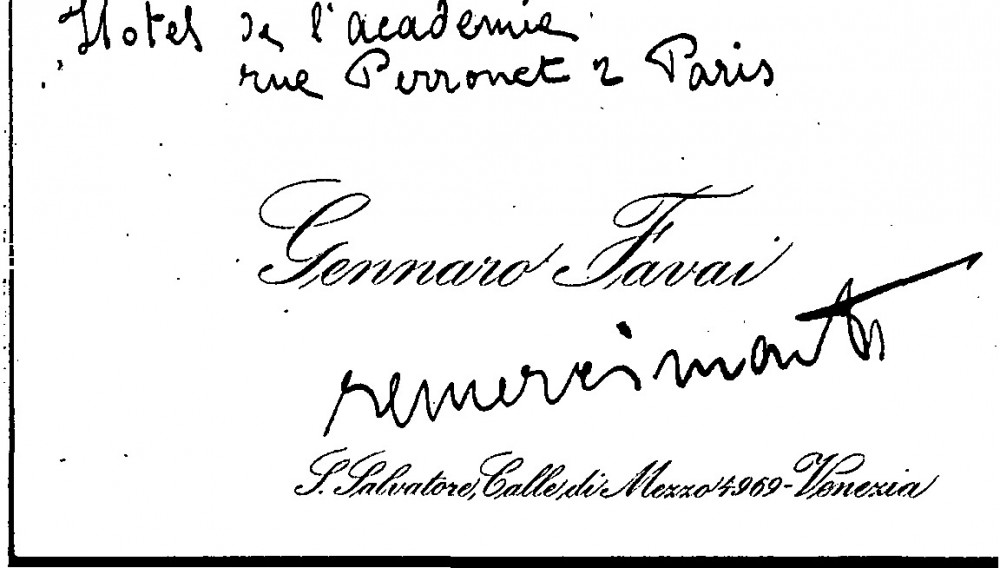 Hotel de l'academie
rue Perronet 2 Paris
Gennaro Favai
remerciments
S. Salvatore, Calle di Mezzo 4969 - Venezia